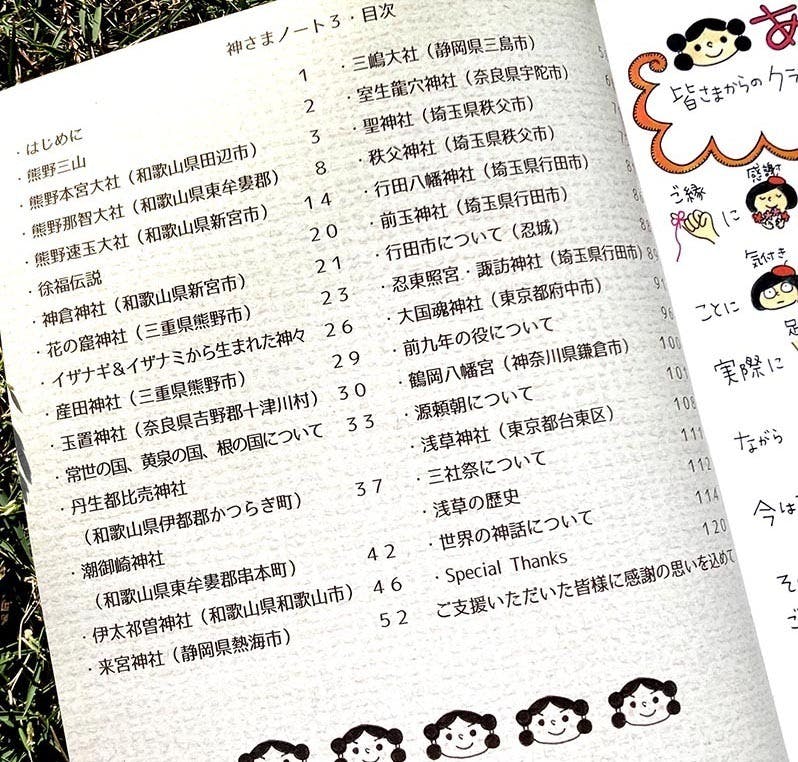 神さまノート3・目次
・はじめに 1
・熊野三山 2
・熊野本宮大社（和歌山県田辺市） 3
・熊野那智大社（和歌山県東牟婁郡） 8
・熊野速玉大社（和歌山県新宮市） 14
・徐福伝説 20
・神倉神社（和歌山県新宮市） 21
・花の窟神社（三重県熊野市） 23
・イザナギ＆イザナミから生まれた神々 26
・産田神社（三重県熊野市） 29
・玉置神社（奈良県吉野郡十津川村） 30
・常世の国、黄泉の国、根の国について 33
・丹生都比売神社
（和歌山県伊都郡かつらぎ町） 37
・潮御崎神社
（和歌山県東牟婁郡串本町） 42
・伊太祁曽神社（和歌山県和歌山市） 46
・来宮神社（静岡県熱海市） 52
・三嶋大社（静岡県三島市）
・室生龍穴神社（奈良県宇陀市）
・聖神社（埼玉県秩父市）
・秩父神社（埼玉県秩父市）
・行田八幡神社（埼玉県行田市）
・前玉神社（埼玉県行田市）
・行田市について（忍城）
・忍東照宮・諏訪神社（埼玉県行田市） 89
・大国魂神社（東京都府中市） 91
・前九年の役について 96
・鶴岡八幡宮（神奈川県鎌倉市） 100
・源頼朝について
・浅草神社（東京都台東区） 108
・三社祭について 111
・浅草の歴史 112
・世界の神話について 114
・Special Thanks 120
ご支援いただいた皆様に感謝の思いを込めて
あ
皆さまからのクラ
ご縁 に 感謝
気付き
ことに
実際に
ながら
今は